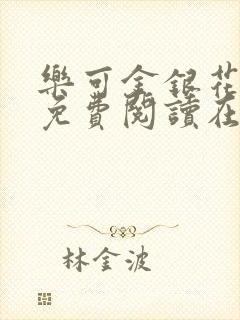 樂可金銀花
免費閱讀在
林金波